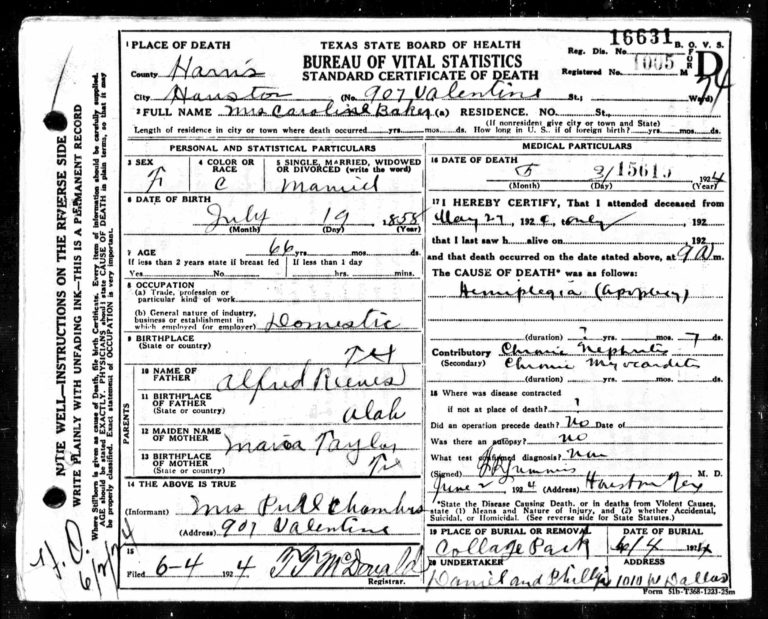 16631
1 PLACE OF DEATH
TEXAS STATE BOARD OF HEALTH
Reg. Dis. No. B. O. V. S.
BUREAU OF VITAL STATISTICS
FORM D
County Harris
STANDARD CERTIFICATE OF DEATH
Registered No. 1005
City Houston (No. 907 Valentine St.; Ward) 74
2 FULL NAME Mrs Caroline Baker (a) RESIDENCE. NO. St.,
(If nonresident, give city or town and State)
Length of residence in city or town where death occurred yrs. mos. ds. How long in U. S. if of foreign birth? yrs. mos. ds.
PERSONAL AND STATISTICAL PARTICULARS
3 SEX F
4 COLOR OR RACE C
5 SINGLE, MARRIED, WIDOWED OR DIVORCED (write the word)
Married
6 DATE OF BIRTH
July 19 1858
(Month) (Day) (Year)
7 AGE 66
If less than 2 years state if breast fed If less than 1 day
Yes No hrs. mins.
8 OCCUPATION
(a) Trade, profession or particular kind of work
(b) General nature of industry, business or establishment in which employed (or employer) Domestic
9 BIRTHPLACE
(State or country) Tex
PARENTS
10 NAME OF FATHER Alfred Reeves
11 BIRTHPLACE OF FATHER
(State or country) Alah
12 MAIDEN NAME OF MOTHER Maria Taylor
13 BIRTHPLACE OF MOTHER
(State or country) Tx
14 THE ABOVE IS TRUE
(Informant) Mrs Chambers
(Address) 907 Valentine
15
Filed 6-4 1924 T F McDonald
Registrar.
MEDICAL PARTICULARS
16 DATE OF DEATH
5 15615 1924
(Month) (Day) (Year)
17 I HEREBY CERTIFY, That I attended deceased from
May 27, 192 only 192
that I last saw h alive on 192
and that death occurred on the date stated above, at 9 m.
The CAUSE OF DEATH* was as follows:
Hemiplegia (apoplexy)
(duration) ? yrs. mos. 7 ds.
Contributory Chronic Nephritis
(Secondary) Chronic Myocarditis
(duration) yrs. mos. ds.
18 Where was disease contracted
if not at place of death? ?
Did an operation precede death? No Date of
Was there an autopsy? no
What test confirmed diagnosis?
(Signed) M. D.
June 2, 1924 (Address) Houston Tex
*State the Disease Causing Death, or in deaths from Violent Causes, state (1) Means and Nature of Injury, and (2) whether Accidental, Suicidal, or Homicidal. (See reverse side for State Statutes.)
19 PLACE OF BURIAL OR REMOVAL DATE OF BURIAL
College Park 6/4 1924
20 UNDERTAKER ADDRESS
Daniel and Phillips 1010 W Dallas
Form 51b-T368-1223-25m
WRITE PLAINLY WITH UNFADING INK—THIS IS A PERMANENT RECORD
Where Stillborn is given as cause of Death, file birth Certificate. Every item of information should be carefully supplied. AGE should be stated EXACTLY. PHYSICIANS should state CAUSE OF DEATH in plain terms, so that it may be properly classified. Exact statement of OCCUPATION is very important.
6/2/24